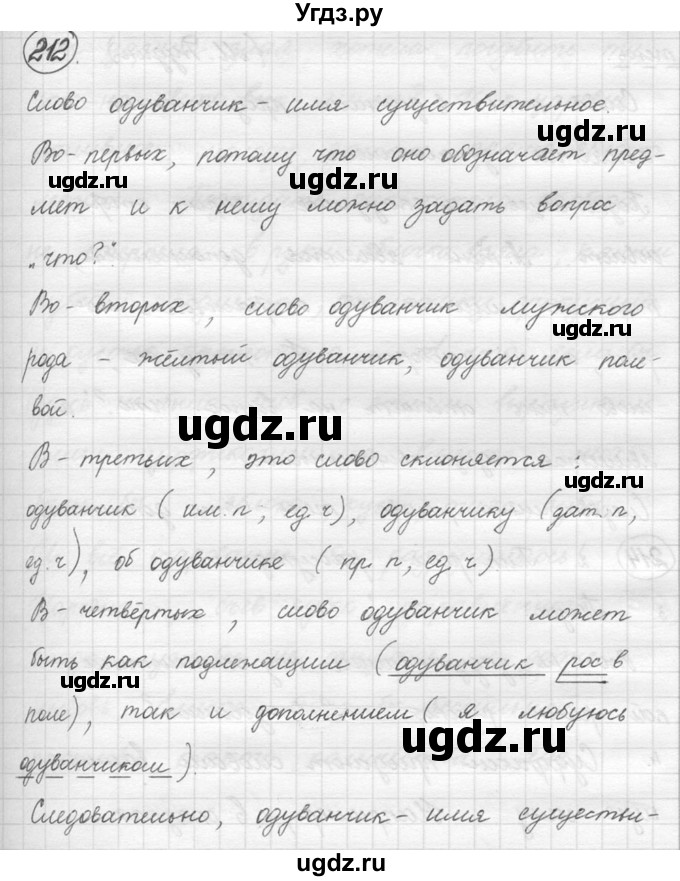 Угдз.ру
212.
Слово одуванчик - имя существительное.
ugdz.ru
Во-первых, потому что оно обозначает пред-
ugdz.ru ugdz.ru
мет и к нему можно задать вопрос
„что?“
Во-вторых, слово одуванчик мужского
ugdz.ru
рода - жёлтый одуванчик, одуванчик поле-
вой.
ugdz.ru
В-третьих, это слово склоняется:
ugdz.ru
одуванчик (им.п, ед.ч), одуванчику (дат.п,
ед.ч), об одуванчике (пр.п, ед.ч).
В-четвёртых, слово одуванчик может
быть как подлежащим (одуванчик рос в
ugdz.ru
поле), так и дополнением (я любуюсь
ugdz.ru
одуванчиком).
Следовательно, одуванчик - имя существи-
ugdz.ru